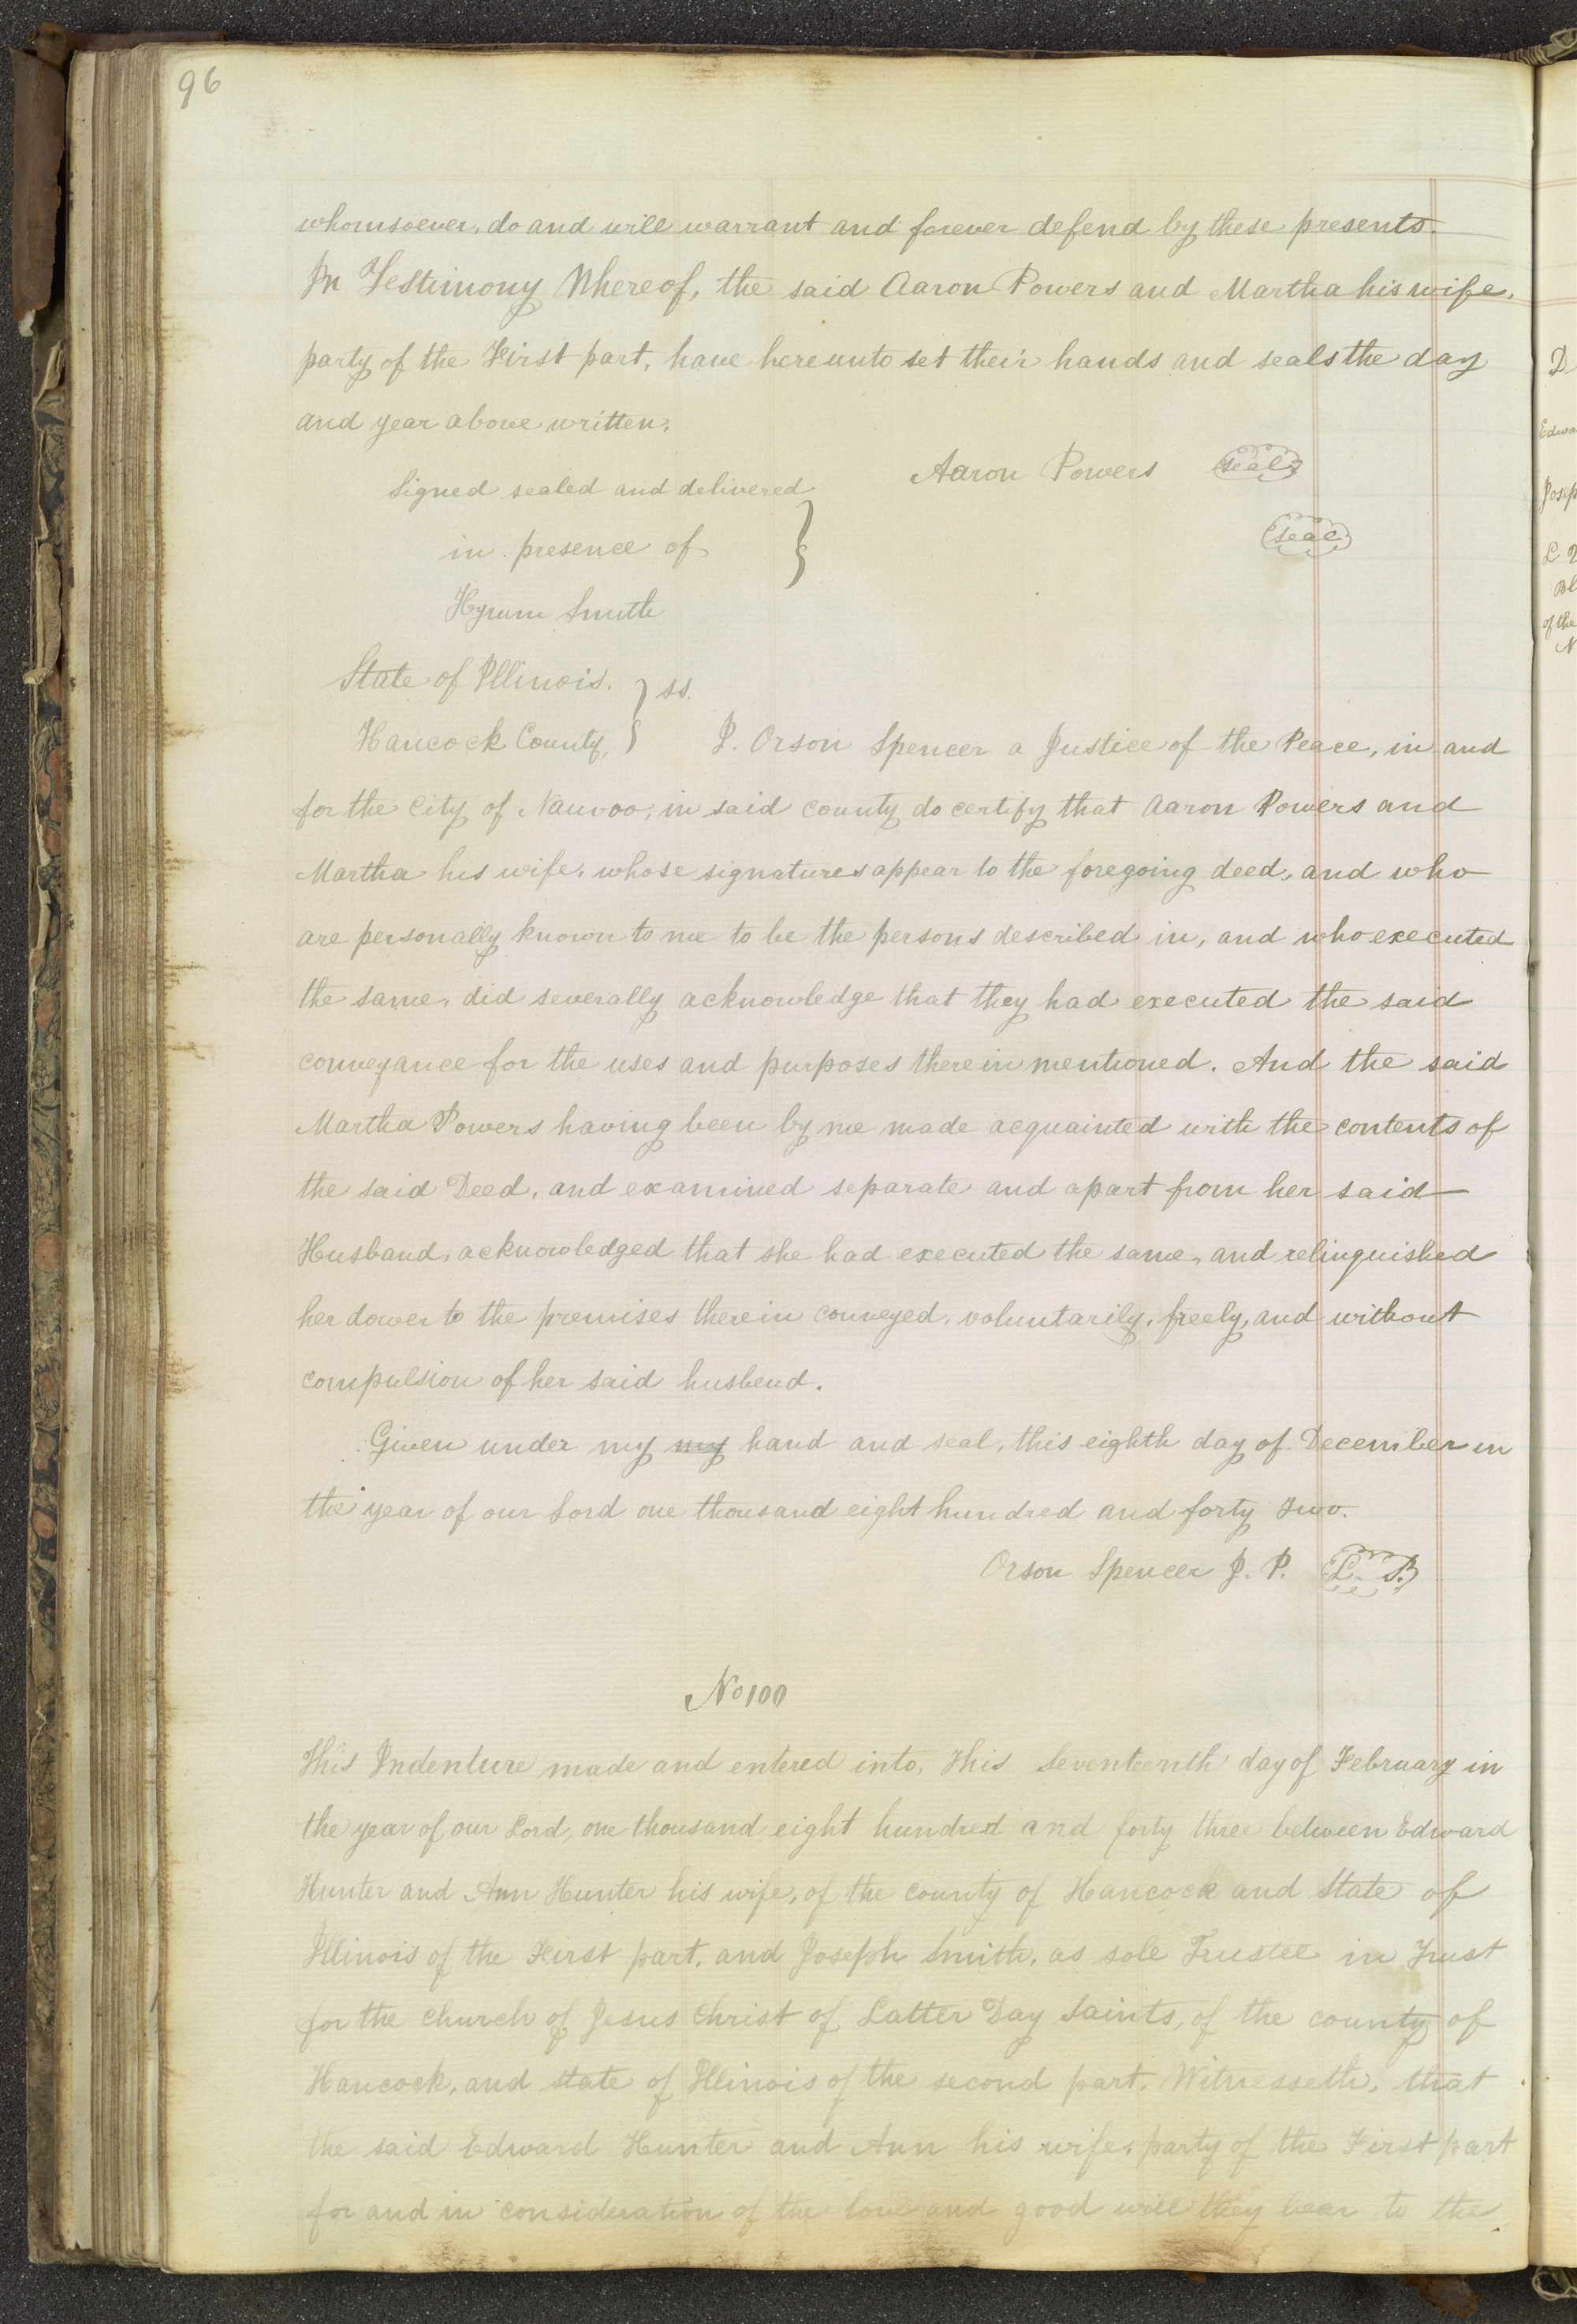 96
whomsoever, do and will warrant and forever defend by these presents.
In Testimony Whereof, the said Aaron Powers and Martha his wife,
party of the First part, have hereunto set their hands and seals the day
and year above written.
Aaron Powers seal
Signed sealed and delivered
seal
in presence of
Hyrum Smith
State of Illinois. } ss.
Hancock County, } I. Orson Spencer a Justice of the Peace, in and
for the City of Nauvoo, in said county do certify that Aaron Powers and
Martha his wife, whose signatures appear to the foregoing deed, and who
are personally known to me to be the persons described in, and who executed
the same, did severally acknowledge that they had executed the said
conveyance for the uses and purposes therein mentioned. And the said
Martha Powers having been by me made acquainted with the contents of
the said Deed, and examined separate and apart from her said
Husband, acknowledged that she had executed the same, and relinquished
her dower to the premises therein conveyed, voluntarily, freely, and without
compulsion of her said husbend.
Given under my my hand and seal, this eighth day of December in
the year of our Lord one thousand eight hundred and forty two.
Orson Spencer J. P. L. S.
No 100
This Indenture made and entered into, this Seventeenth day of February in
the year of our Lord, one thousand eight hundred and forty three between Edward
Hunter and Ann Hunter his wife, of the county of Hancock and State of
Illinois of the First part, and Joseph Smith, as sole Trustee in Trust
for the church of Jesus Christ of Latter Day Saints, of the county of
Hancock, and state of Illinois of the second part. Witnesseth, that
the said Edward Hunter and Ann his wife, party of the First part
for and in consideration of the love and good will they bear to the